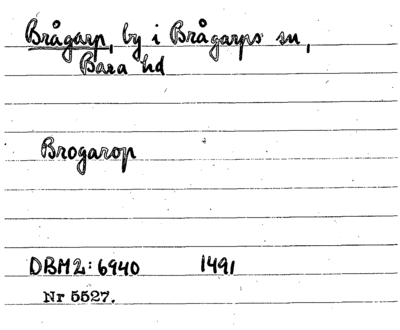 Brågarp, by i Brågarps sn,
Bara hd
Brogarop
DBM2:6940 1491
Nr 5527.